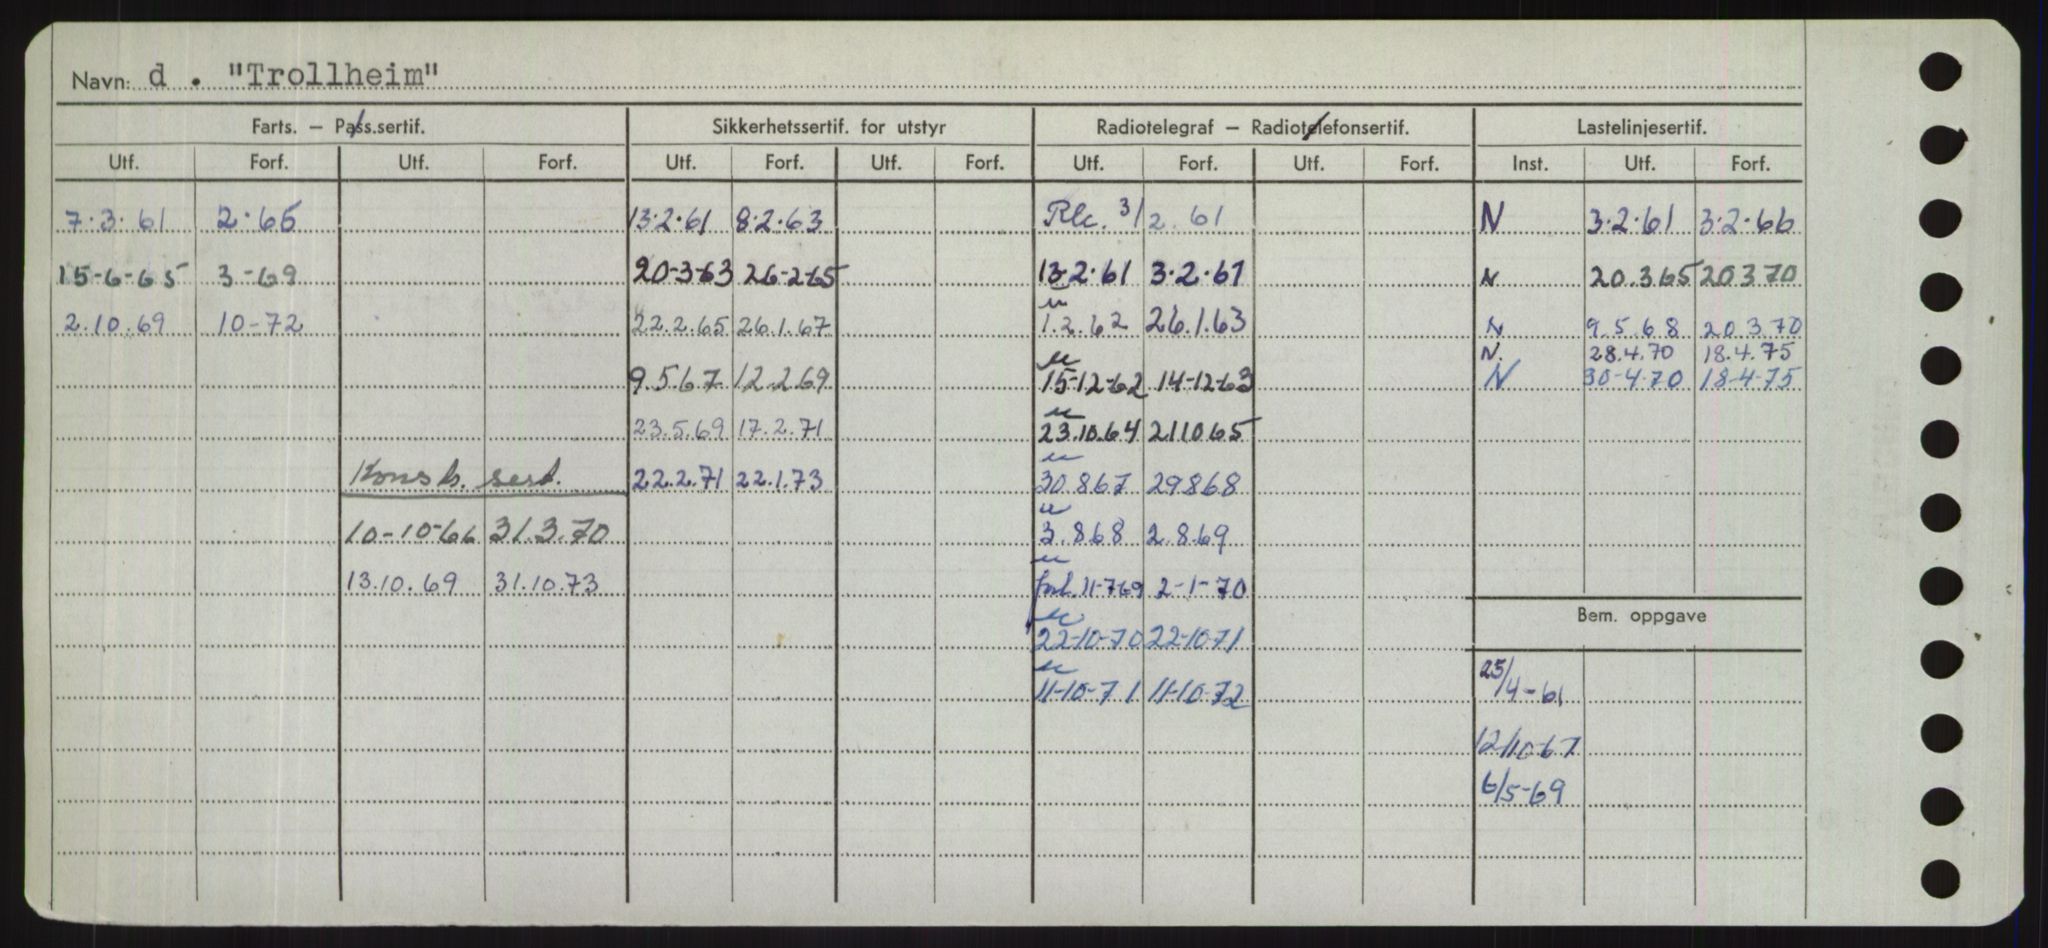 Navn: d . "Trollheim"
Farts. – Pass.sertif. Sikkerhetssertif. for utstyr Radiotelegraf – Radiotelefonsertif. Lastelinjesertif.
Utf. Forf. Utf. Forf. Utf. Forf. Utf. Forf. Utf. Forf. Utf. Forf. Inst. Utf. Forf.
7.3.61 2.65 13.2.61 8.2.63 3/2.61 N 3.2.61 3.2.66
15-6-65 3-69 20-3-63 26-2-65 13.2.61 3.2.61 N 20.3.65 20370
2.10.69 10-72 22.2.65 26.1.67 1.2.62 26.1.63 N 9.5.68 20.3.70
N. 28.4.70 18.4.75
9.567 12.269 15-12-62 14-12-63 N 30-4-70 18-4-75
23.5.69 17.2.71 23.10.64 211065
Konstr. sert. 22.2.71 22.1.73 30.867 29868
10-10-66 31.3.70 3.868 2.869
13.10.69 31.10.73 forl. 11-7-69 2-1-70
Bem. oppgave
22-10-70 22-10-71
25/4-61
11-10-71 11-10-72
12/10-67
6/5-69